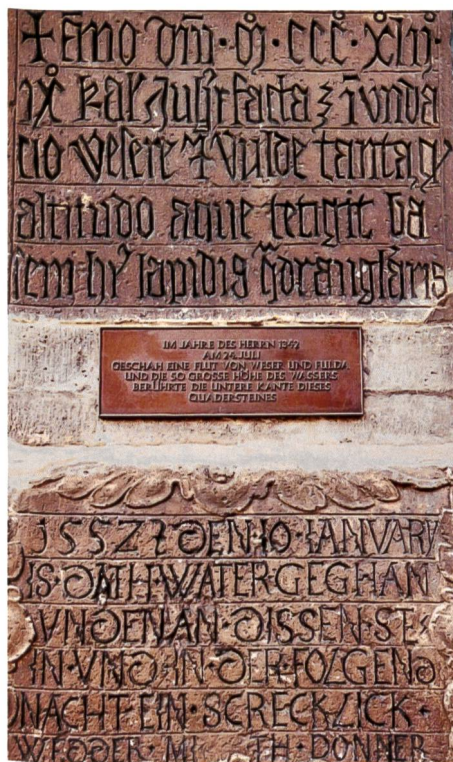 + Año dñi · m̊ · ccc̊ · xlij ·
ix̊ kal' Julij facta ē iunda
cio Vesere ⁊ Vulde tanta q̄
altitudo aque tetigit ba
sem hy' lapidis
IM JAHRE DES HERRN 1342
AM 24. JULI
GESCHAH EINE FLUT VON WESER UND FULDA
UND DIE SO GROSSE HÖHE DES WASSERS
BERÜHRTE DIE UNTERE KANTE DIESES
QUADERSTEINES
1552 DEN·10·IANVARV
IS·DATH·WATER·GEGHAN
VNDEN·AN·DISSEN·STE
IN·VND·IN·DER·FOLGEND
NACHT·EIN·SCRECKLICK·
WEDDER·MI TH·DONNER